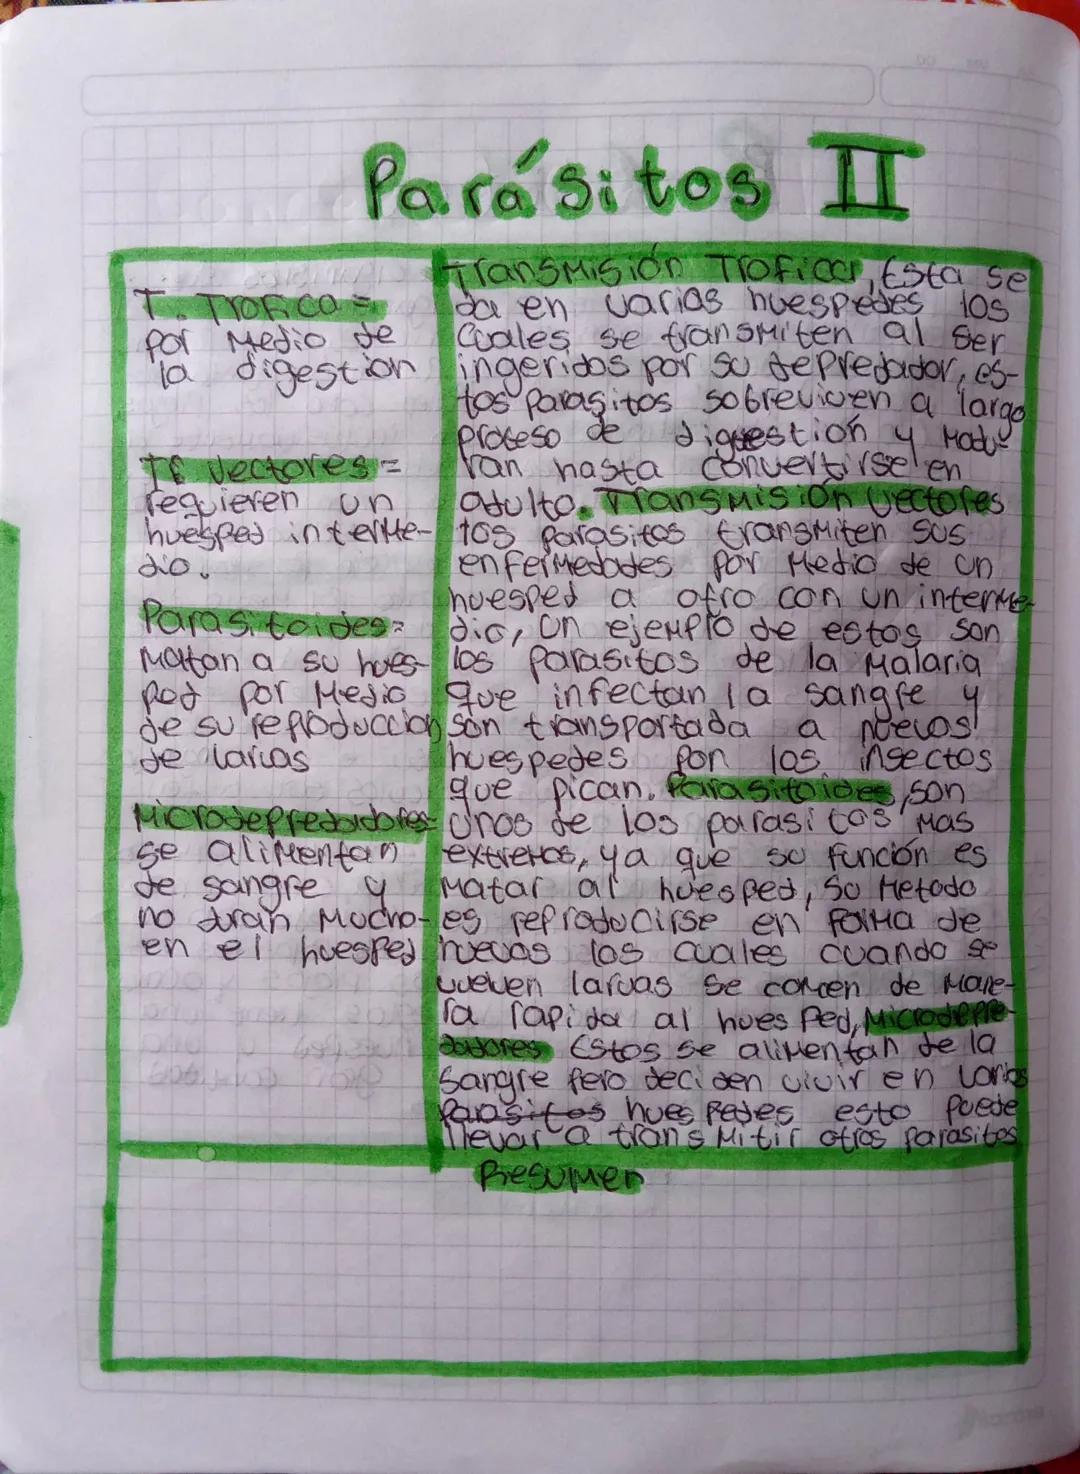 Parásitos II
T. Trofica =
por Medio de
la digestion
T. Vectores =
requieren un
huesped interme-
dio.
Parasitoides =
Matan a su hues-
ped por Medio
de su reproduccion
de larvas
Microdepredadores=
se alimentan
de sangre y
no duran Mucho
en el huesped
Transmisión Trofica, Esta se
da en varios huespedes los
cuales se transmiten al ser
ingeridos por su depredador, es-
tos parasitos sobreviven a largo
proceso de digestión y Madu-
ran hasta convertirse en
adulto. Transmisión Vectores
los parasitos transmiten sus
enfermedades por Medio de un
huesped a otro con un interme-
dio, un ejemplo de estos son
los parasitos de la Malaria
que infectan la sangre y
son transportada a nuevos
huespedes por los insectos
que pican. Parasitoides, son
unos de los parasitos Mas
extremos, ya que su función es
Matar al huesped, su Metodo
es reproducirse en forma de
huevos los cuales cuando se
vuelven larvas se comen de Mane-
ra rapida al huesped, Microdepre-
dadores Estos se alimentan de la
sangre pero deciden vivir en varios
parasitos huespedes esto puede
llevar a transmitir otros parasitos
Resumen